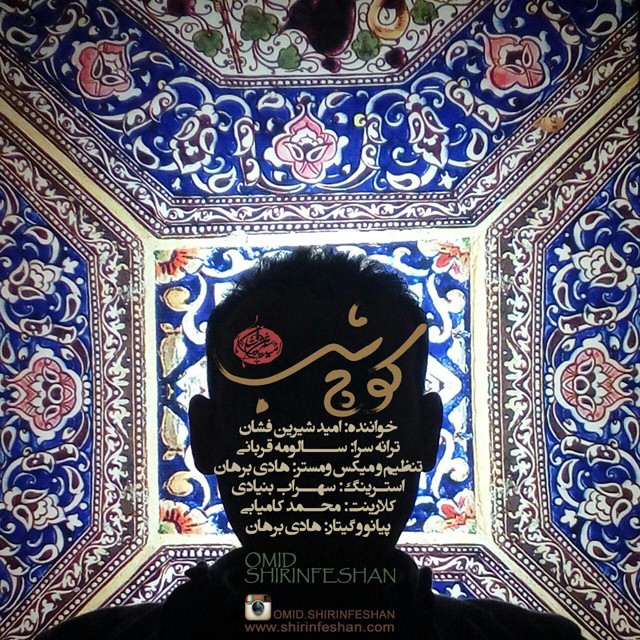 کوچ شب
خواننده: امید شیرین فشان
ترانه سرا: سالومه قربانی
تنظیم و میکس ومستر: هادی برهان
استرینگ: سهراب بنیادی
کلارینت: محمد کامیابی
پیانو و گیتار: هادی برهان
OMID
SHIRINFESHAN
OMID.SHIRINFESHAN
www.shirinfeshan.com